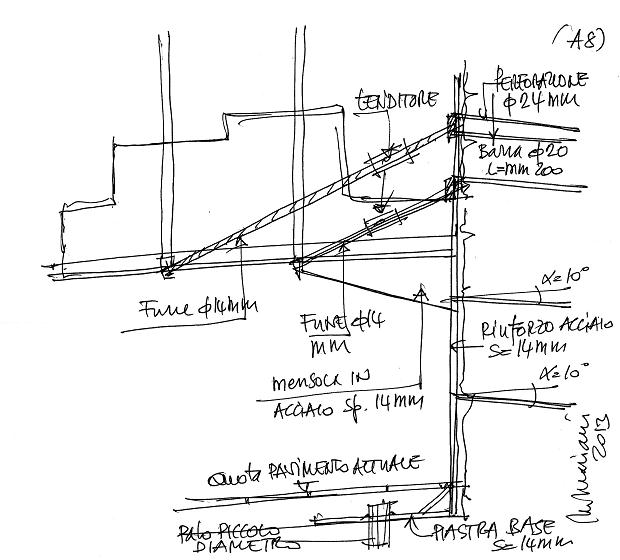 (A8)
PERFORAZIONE
φ24mm
TENDITORE
Barra φ20
L=mm 200
α=10°
Fune φ14mm
FUNE φ14
mm
RINFORZO ACCIAIO
S=14mm
mensola IN
ACCIAIO Sp. 14mm
α=10°
2013
Quota PAVIMENTO ATTUALE
PALO PICCOLO
DIAMETRO
PIASTRA BASE
S=14mm